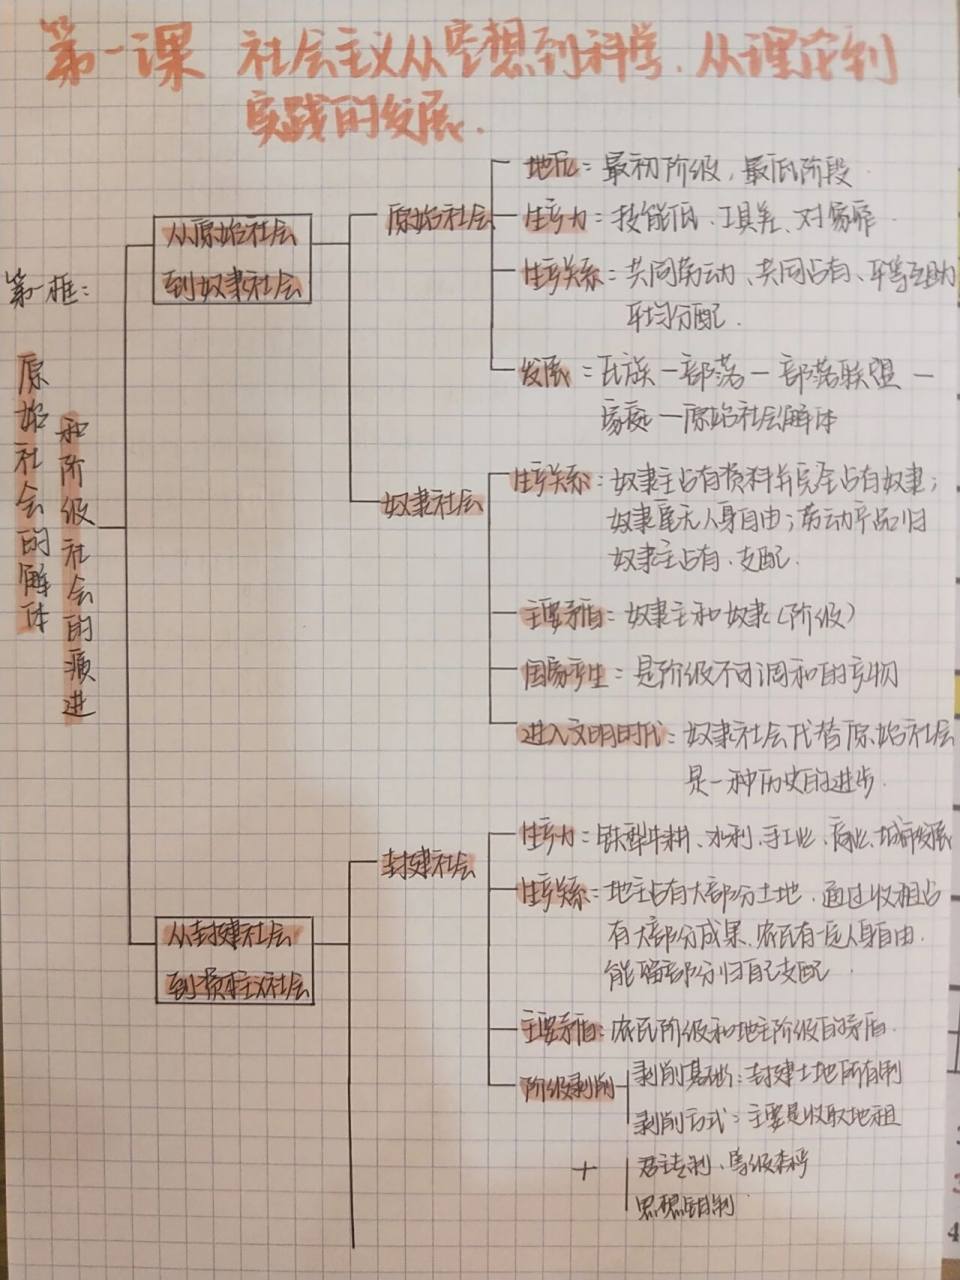 第一课 社会主义从空想到科学、从理论到
实践的发展.
第一框:
原始社会的解体
和阶级社会的演进
从原始社会
到奴隶社会
原始社会
地位:最初阶级,最底阶段
生产力:技能低、工具差、对象窄.
生产关系:共同劳动、共同占有、平等互助
平均分配.
发展:氏族—部落—部落联盟—
家庭—原始社会解体
奴隶社会
生产关系:奴隶主占有资料并完全占有奴隶;
奴隶毫无人身自由;劳动产品归
奴隶主占有、支配.
主要矛盾:奴隶主和奴隶(阶级)
国家产生:是阶级不可调和的产物
进入文明时代:奴隶社会代替原始社会
是一种历史的进步.
从封建社会
到资本主义社会
封建社会
生产力:铁犁牛耕、水利、手工业、商业、城市发展
生产关系:地主占有大部分土地,通过收租占
有大部分成果.农民有一定人身自由.
能留部分归自己支配.
主要矛盾:农民阶级和地主阶级的矛盾.
阶级剥削
剥削基础:封建土地所有制
剥削方式:主要是收取地租
+ 君主专制、等级森严
思想钳制
4